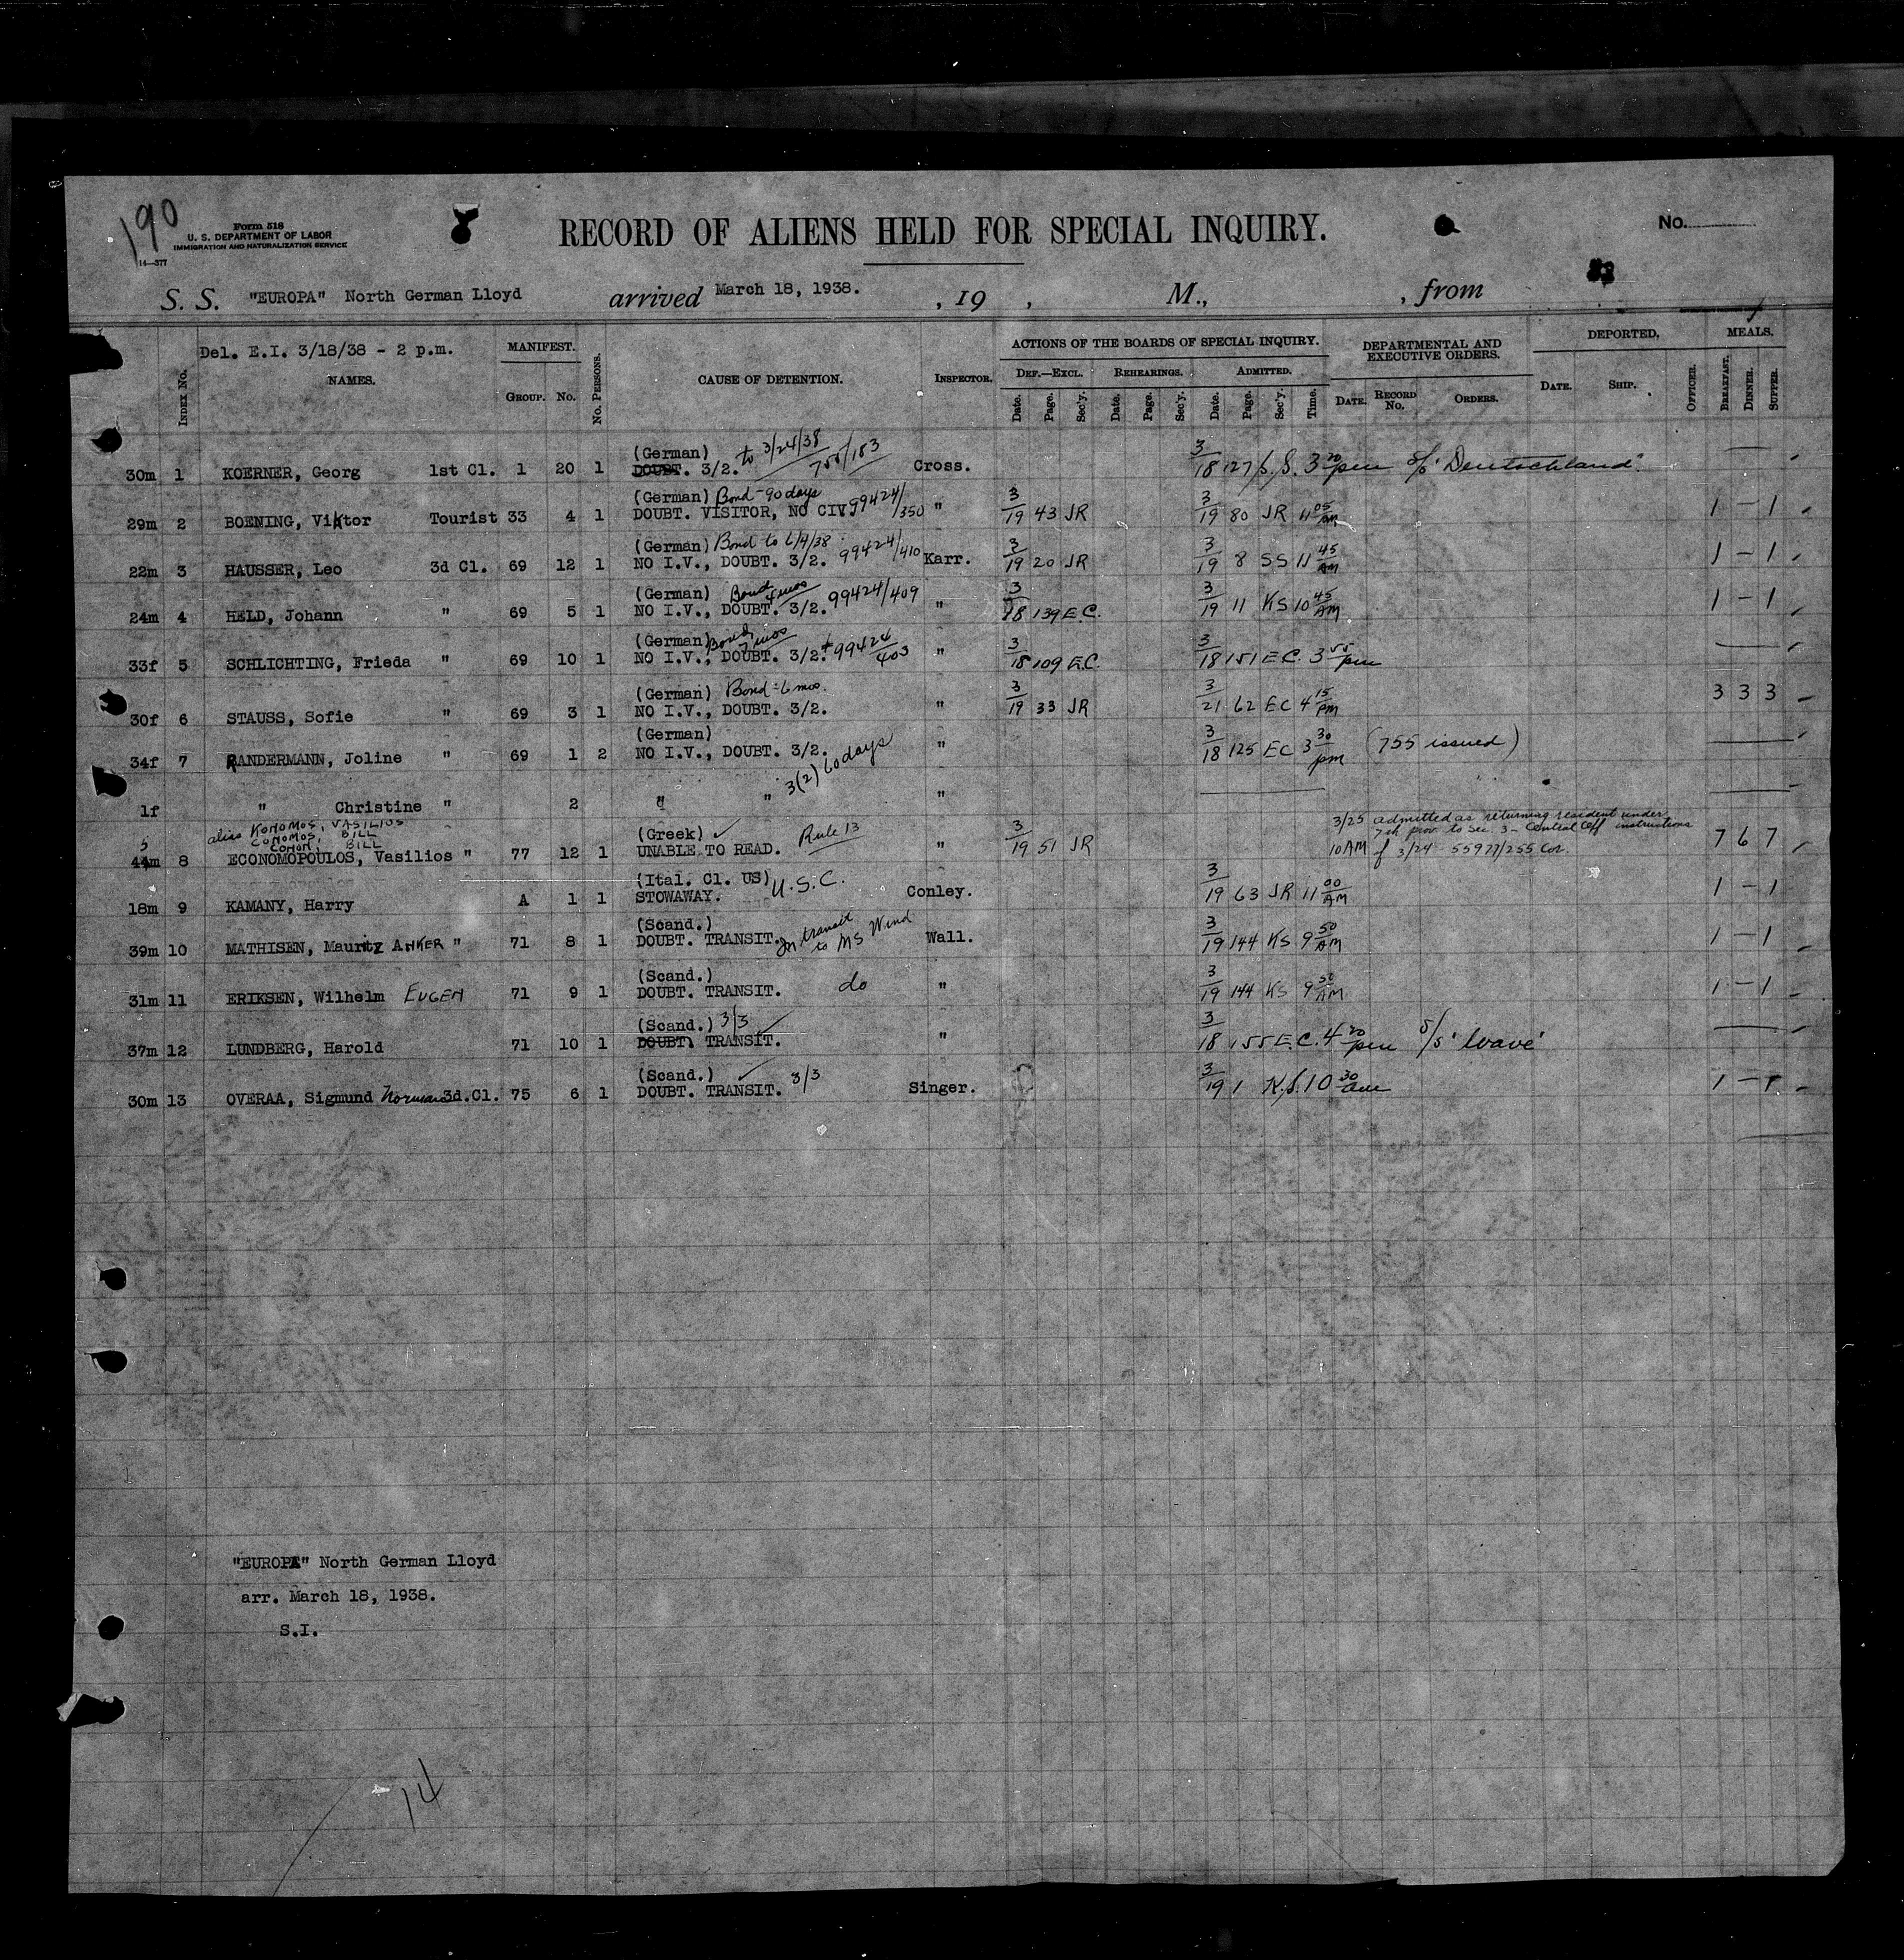 190
Form 518
U. S. DEPARTMENT OF LABOR
IMMIGRATION AND NATURALIZATION SERVICE
14—377
RECORD OF ALIENS HELD FOR SPECIAL INQUIRY.
No.
S. S. "EUROPA" North German Lloyd arrived March 18, 1938. , 19 , M., , from
Del. E.I. 3/18/38 - 2 p.m.
INDEX No. NAMES. MANIFEST. GROUP. No. No. PERSONS. CAUSE OF DETENTION. INSPECTOR. ACTIONS OF THE BOARDS OF SPECIAL INQUIRY. DEF.—EXCL. Date. Page. Sec'y. REHEARINGS. Date. Page. Sec'y. ADMITTED. Date. Page. Sec'y. Time. DEPARTMENTAL AND EXECUTIVE ORDERS. DATE. RECORD No. ORDERS. DEPORTED, DATE. SHIP. OFFICER. MEALS. BREAKFAST. DINNER. SUPPER.
(German) to 3/24/38
30m 1 KOERNER, Georg 1st Cl. 1 20 1 DOUBT. 3/2. 755/183 Cross. 3/18 127 S.S. 3 20 pm S/S 'Deutschland'
(German) Bond - 90 days
29m 2 BOENING, Viktor Tourist 33 4 1 DOUBT. VISITOR, NO CIV 99424/350 " 3/19 43 JR 3/19 80 JR 11 05 AM 1 - 1
(German) Bond to 6/4/38
22m 3 HAUSSER, Leo 3d Cl. 69 12 1 NO I.V., DOUBT. 3/2. 99424/410 Karr. 3/19 20 JR 3/19 8 SS 11 45 AM 1 - 1
(German) Bond 4 mos
24m 4 HELD, Johann " 69 5 1 NO I.V., DOUBT. 3/2. 99424/409 " 3/18 139 E.C. 3/19 11 KS 10 45 AM 1 - 1
(German) Bond 7 mos
33f 5 SCHLICHTING, Frieda " 69 10 1 NO I.V., DOUBT. 3/2. 99424/403 " 3/18 109 E.C. 3/18 151 EC. 3 55 pm
(German) Bond - 6 mos.
30f 6 STAUSS, Sofie " 69 3 1 NO I.V., DOUBT. 3/2. " 3/19 33 JR 3/21 62 EC 4 15 PM 3 3 3
(German)
34f 7 RANDERMANN, Joline " 69 1 2 NO I.V., DOUBT. 3/2. " 3/18 125 EC 3 30 pm (755 issued)
1f " Christine " 2 " " 3(2) 60 days "
alias KONOMOS, VASILIOS
CONOMOS, BILL
CONOM, BILL
(Greek) ✓ Rule 13
44m 8 ECONOMOPOULOS, Vasilios " 77 12 1 UNABLE TO READ. " 3/19 51 JR 3/25 admitted as returning resident under 7th prov. to Sec. 3 - Central Off instructions 10 AM of 3/24 - 55977/255 Cor. 7 6 7
(Ital. Cl. US) U.S.C.
18m 9 KAMANY, Harry A 1 1 STOWAWAY. Conley. 3/19 63 JR 11 00 AM 1 - 1
(Scand.) In transit to MS Wind
39m 10 MATHISEN, Mauritz ANKER " 71 8 1 DOUBT. TRANSIT. Wall. 3/19 144 KS 9 50 AM 1 - 1
(Scand.)
31m 11 ERIKSEN, Wilhelm EUGEN 71 9 1 DOUBT. TRANSIT. do " 3/19 144 KS 9 50 AM 1 - 1
(Scand.) 3/3 ✓
37m 12 LUNDBERG, Harold 71 10 1 DOUBT. TRANSIT. " 3/18 155 E.C. 4 20 pm S/S
(Scand.) ✓ 3/3
30m 13 OVERAA, Sigmund Norman 3d.Cl. 75 6 1 DOUBT. TRANSIT. Singer. 3/19 1 K.S. 10 30 am 1 - 1
"EUROPA" North German Lloyd
arr. March 18, 1938.
S.I.
14